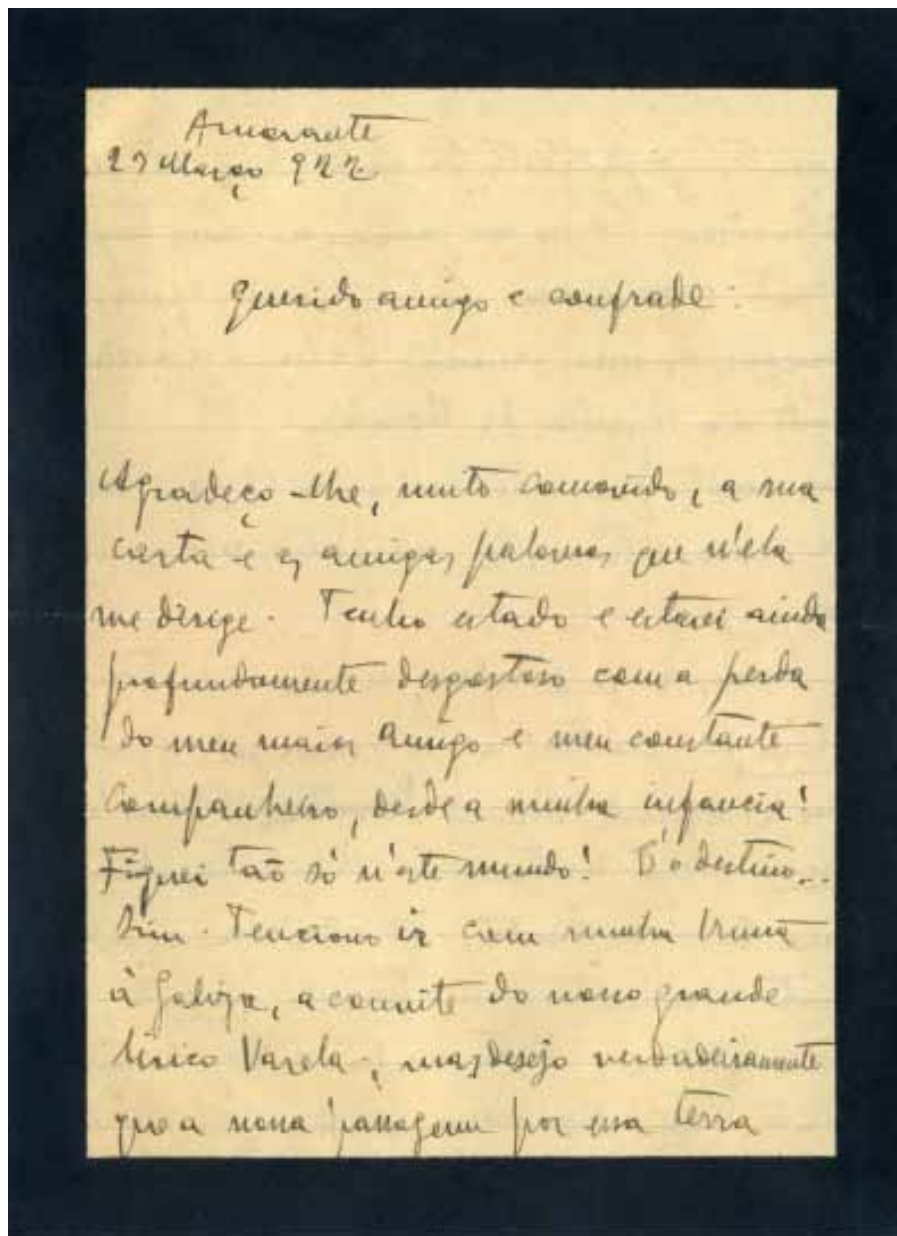 Amarante
27 Março 922
Querido amigo e confrade:
Agradeço-lhe, muito comovido, a sua
carta e as amigas palavras que n'ela
me dirige. Tenho estado e estarei ainda
profundamente desgostoso com a perda
do meu maior amigo e meu constante
companheiro, desde a minha infancia!
Fiquei tão só n'este mundo! É o destino...
Sim. Tenciono ir com minha Irmã
à Galiza, a convite do nosso grande
lirico Varela; mas desejo verdadeiramente
que a nossa passagem por essa terra